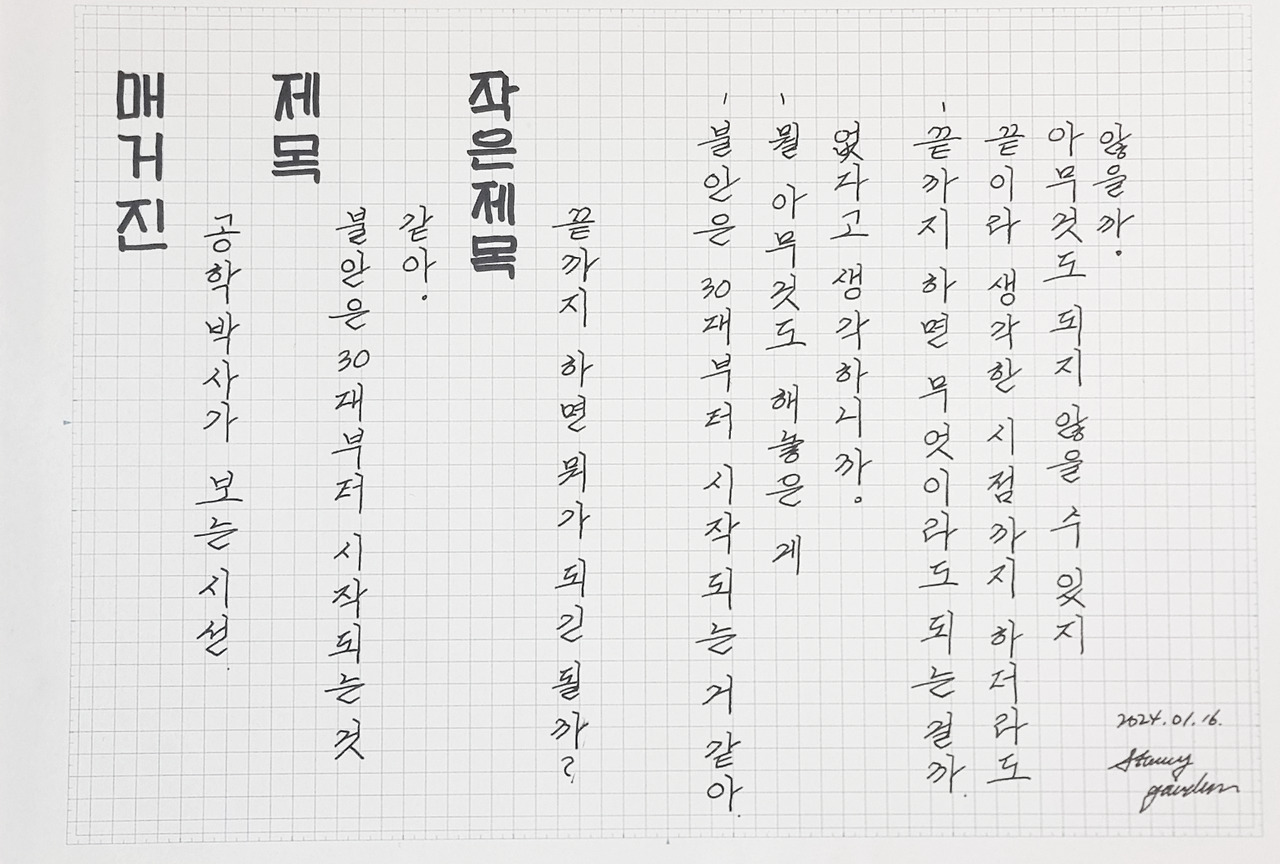 매거진
공학박사가 보는 시선.
제목
불안은 30대부터 시작되는 것
같아.
작은제목
끝까지 하면 뭐가 되긴 될까?
- 불안은 30대부터 시작되는 거 같아.
- 뭘 아무것도 해놓은 게
없다고 생각하니까.
- 끝까지 하면 무엇이라도 되는 걸까.
끝이라 생각한 시점까지 하더라도
아무것도 되지 않을 수 있지
않을까.
2024.01.16.